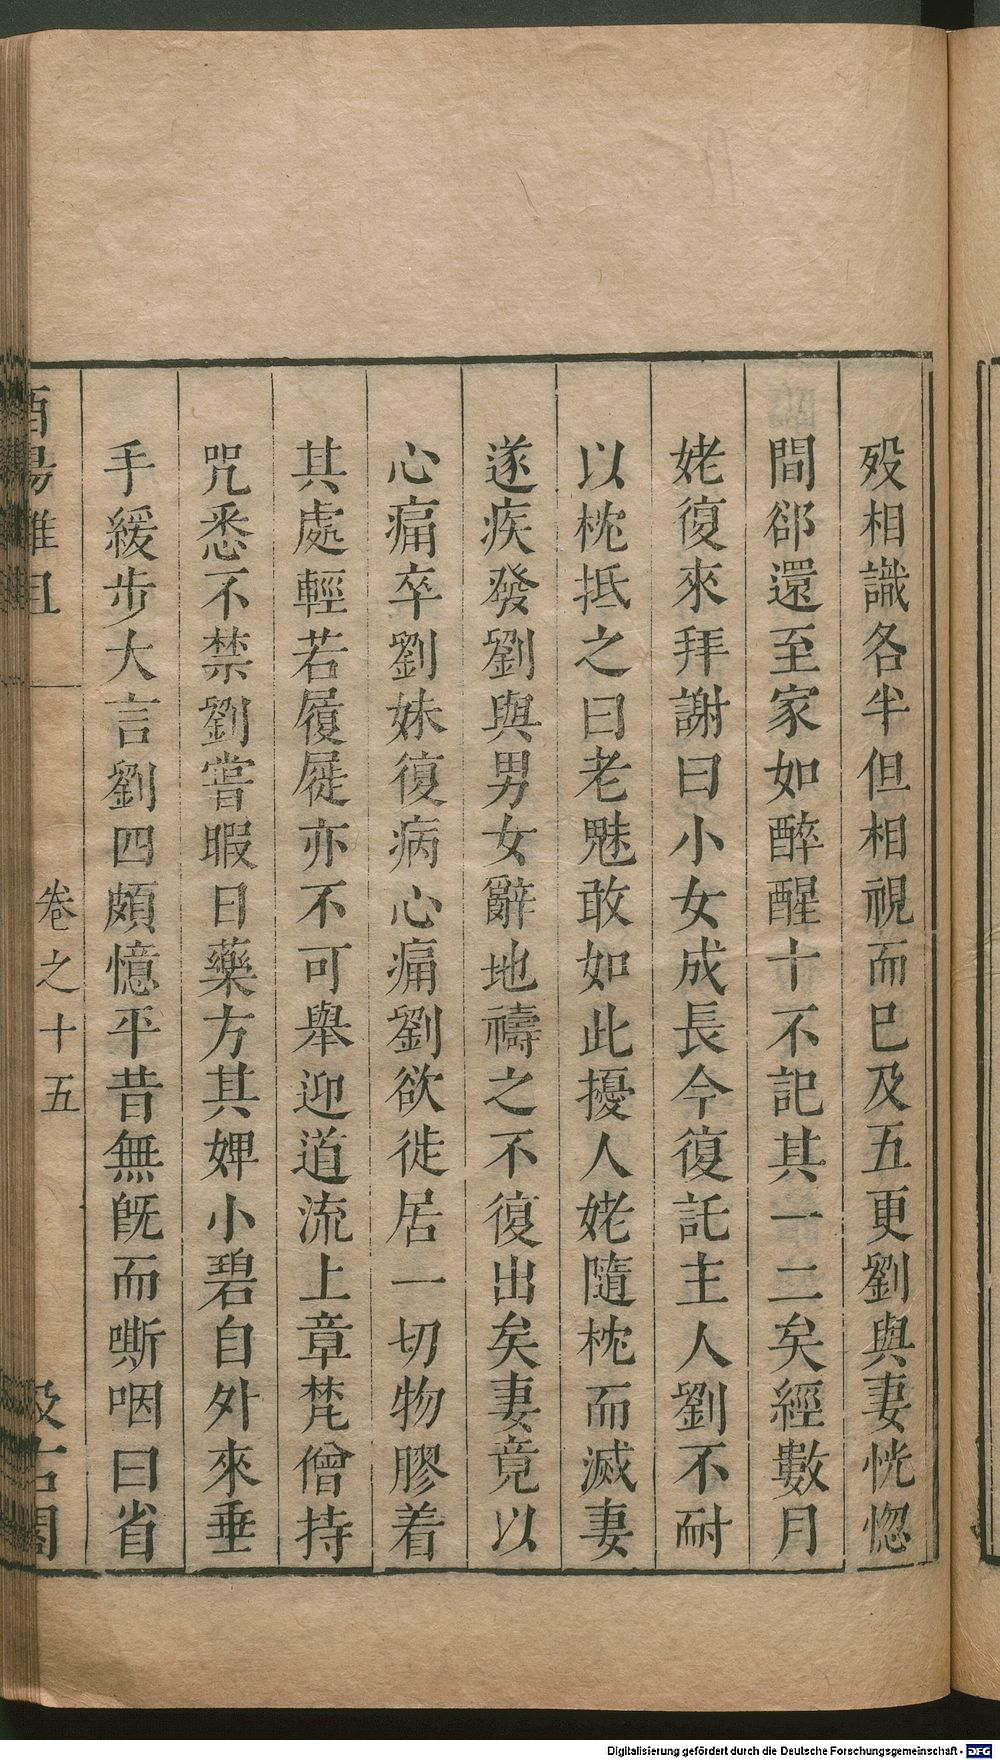 殁相識各半但相視而巳及五更劉與妻恍惚
間郤還至家如醉醒十不記其一二矣經數月
姥復來拜謝曰小女成長今復託主人劉不耐
以枕抵之曰老魅敢如此擾人姥隨枕而滅妻
遂疾發劉與男女酹地禱之不復出矣妻竟以
心痛卒劉妹復病心痛劉欲徙居一切物膠着
其處輕若履屣亦不可舉迎道流上章梵僧持
咒悉不禁劉嘗暇日藥方其婢小碧自外來垂
手緩步大言劉四頗憶平昔無旣而嘶咽曰省
酉陽雜俎
卷之十五
汲古閣
Digitalisierung gefördert durch die Deutsche Forschungsgemeinschaft - DFG